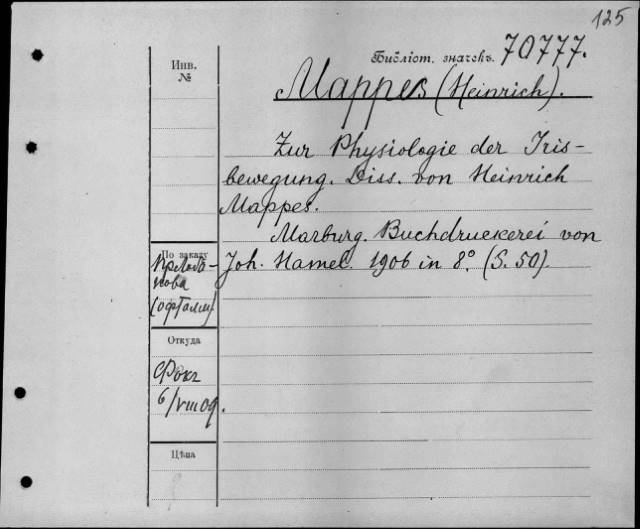 125
Библіот. значекъ. 70777.
Инв.
№
Mappes (Heinrich).
Zur Physiologie der Iris-
bewegung. Diss. von Heinrich
Mappes.
Marburg. Buchdruckerei von
Joh. Hamel. 1906 in 8° (S. 50).
По заказу
нова
(офталм)
Откуда
Фокъ
6/VIII 09.
Цѣна